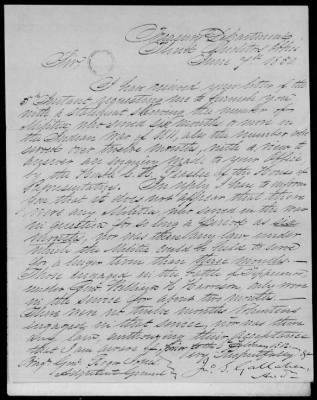 Treasury Department
Third Auditors Office
June 7th 1852
Sir
I have received your letter of the
5th Instant requesting me to furnish you
with a Statement showing the number of
Militia who served six months or more in
the Indian War of 1811, also the number who
served over twelve months, with a view to
answer an enquiry made to your Office
by the Clerk of the House of
Representatives. In reply I have to inform
you that it does not appear that there
were any Militia who served in the war
in question for so long a period as six
months, nor was there any law under
which the Militia could be held to serve
for a longer term than three months.
Those engaged in the battle of Tippecanoe
under Genl William H. Harrison, only were
in the service for about two months.
There were no twelve months Volunteers
engaged in that service, nor was there
any law authorizing their acceptance
that I am aware of prior to the
Very Respectfully &c
Jno S. Gallaher
Audr
Brigr Genl Roger Jones
Adjutant General